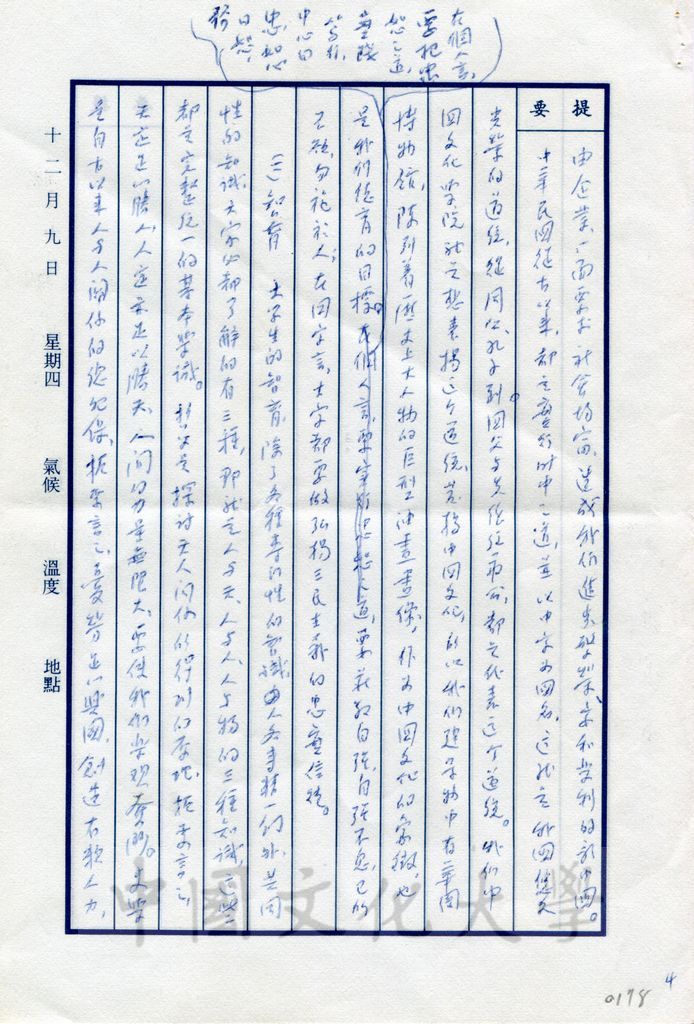 在個人言，
要把忠
恕之道，
實踐
篤行，
中心曰
忠，如心
曰恕，
提要
由企業，一面要求社會均富，造成我們進步繁榮安和樂利的新中國。
中華民國從古以來，都是實行時中之道，並以中字為國名，這就是我國悠久
光榮的道統，從周公、孔子到國父與先總統蔣公，都是代表這個道統。我們中
國文化學院就是想表揚這個道統，光揚中國文化，所以我們建築物中有華岡
博物館，陳列著歷史上大人物的巨型油畫畫像，作為中國文化的象徵，也
是我們德育的目標。在個人言，要實行忠恕之道，要莊敬自強，自強不息，己所
不欲，勿施於人；在國家言，大家都要做弘揚三民主義的忠實信徒。
(二)智育 大學生的智育，除了各種專門性的知識由人各專精一行外，共同
性的知識，大家必都了解的有三種，那就是人與天、人與人、人與物的三種知識，這些
都是完整統一的基本學識。哲學是探討天人關係所得到的原理，扼要言之，
天定足以勝人，人定亦足以勝天，人間的力量無限大，要使我們樂觀奮鬥。史學
是自古以來人與人關係的總紀錄，扼要言之，多難足以興國，創造有賴人力，
十二月九日 星期四 氣候 溫度 地點
中國文化大學
4
0178